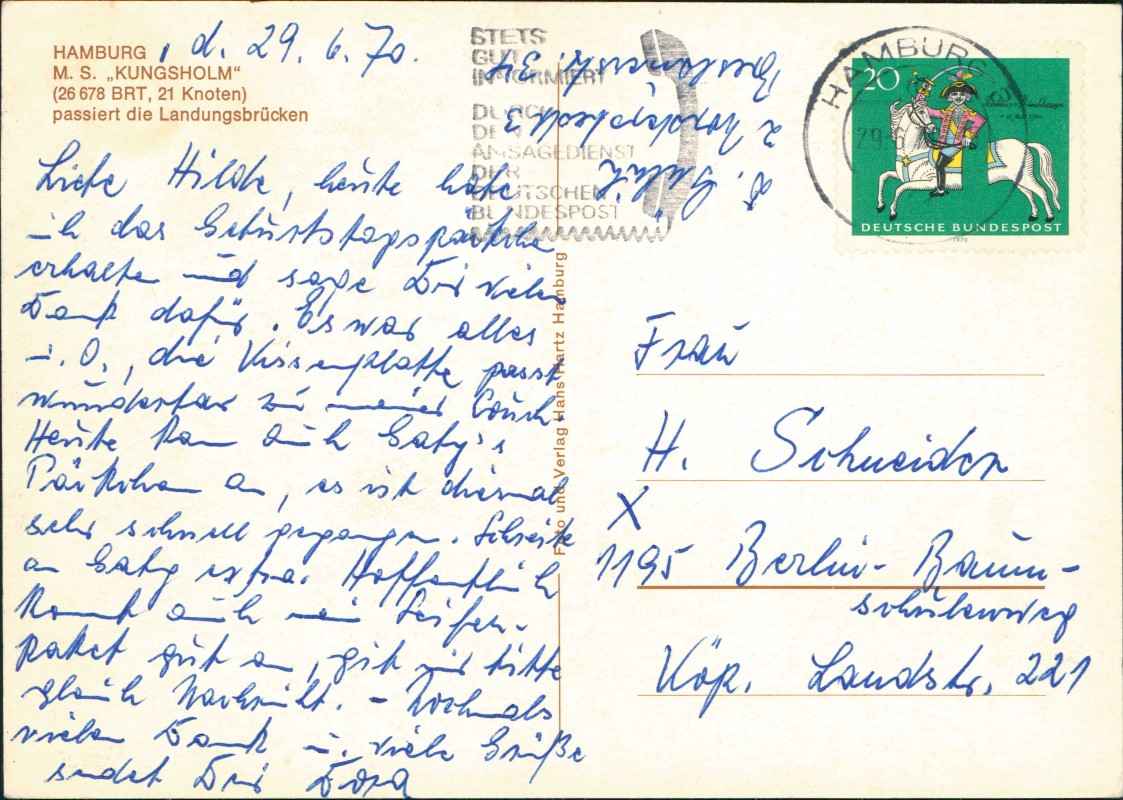 HAMBURG, d. 29.6.70.
M. S. „KUNGSHOLM“
(26 678 BRT, 21 Knoten)
passiert die Landungsbrücken
Liebe Hilde, heute habe
ich das Geburtstagspäckchen
erhalten und sage Dir vielen
Dank dafür. Es war alles
i. O., die Kissenplatte passt
wunderbar zu meiner Couch.
Heute kam auch Gaby's
Päckchen an, es ist diesmal
sehr schnell gegangen. Schreibe
an Gaby extra. Hoffentlich
kommt auch mein Seifen-
paket gut an, gib mir bitte
gleich Nachricht. - Nochmals
vielen Dank u. viele Grüße
sendet Dir Dora
STETS
GUT
INFORMIERT
DURCH
DEN
ANSAGEDIENST
DER
DEUTSCHEN
BUNDESPOST
2 Norderstedt 3
Foto und Verlag Hans Hartz Hamburg
HAMBURG
29.6
20
DEUTSCHE BUNDESPOST
1970
Frau
H. Schneider
X
1195 Berlin-Baum-
schulenweg
Köp. Landstr. 221